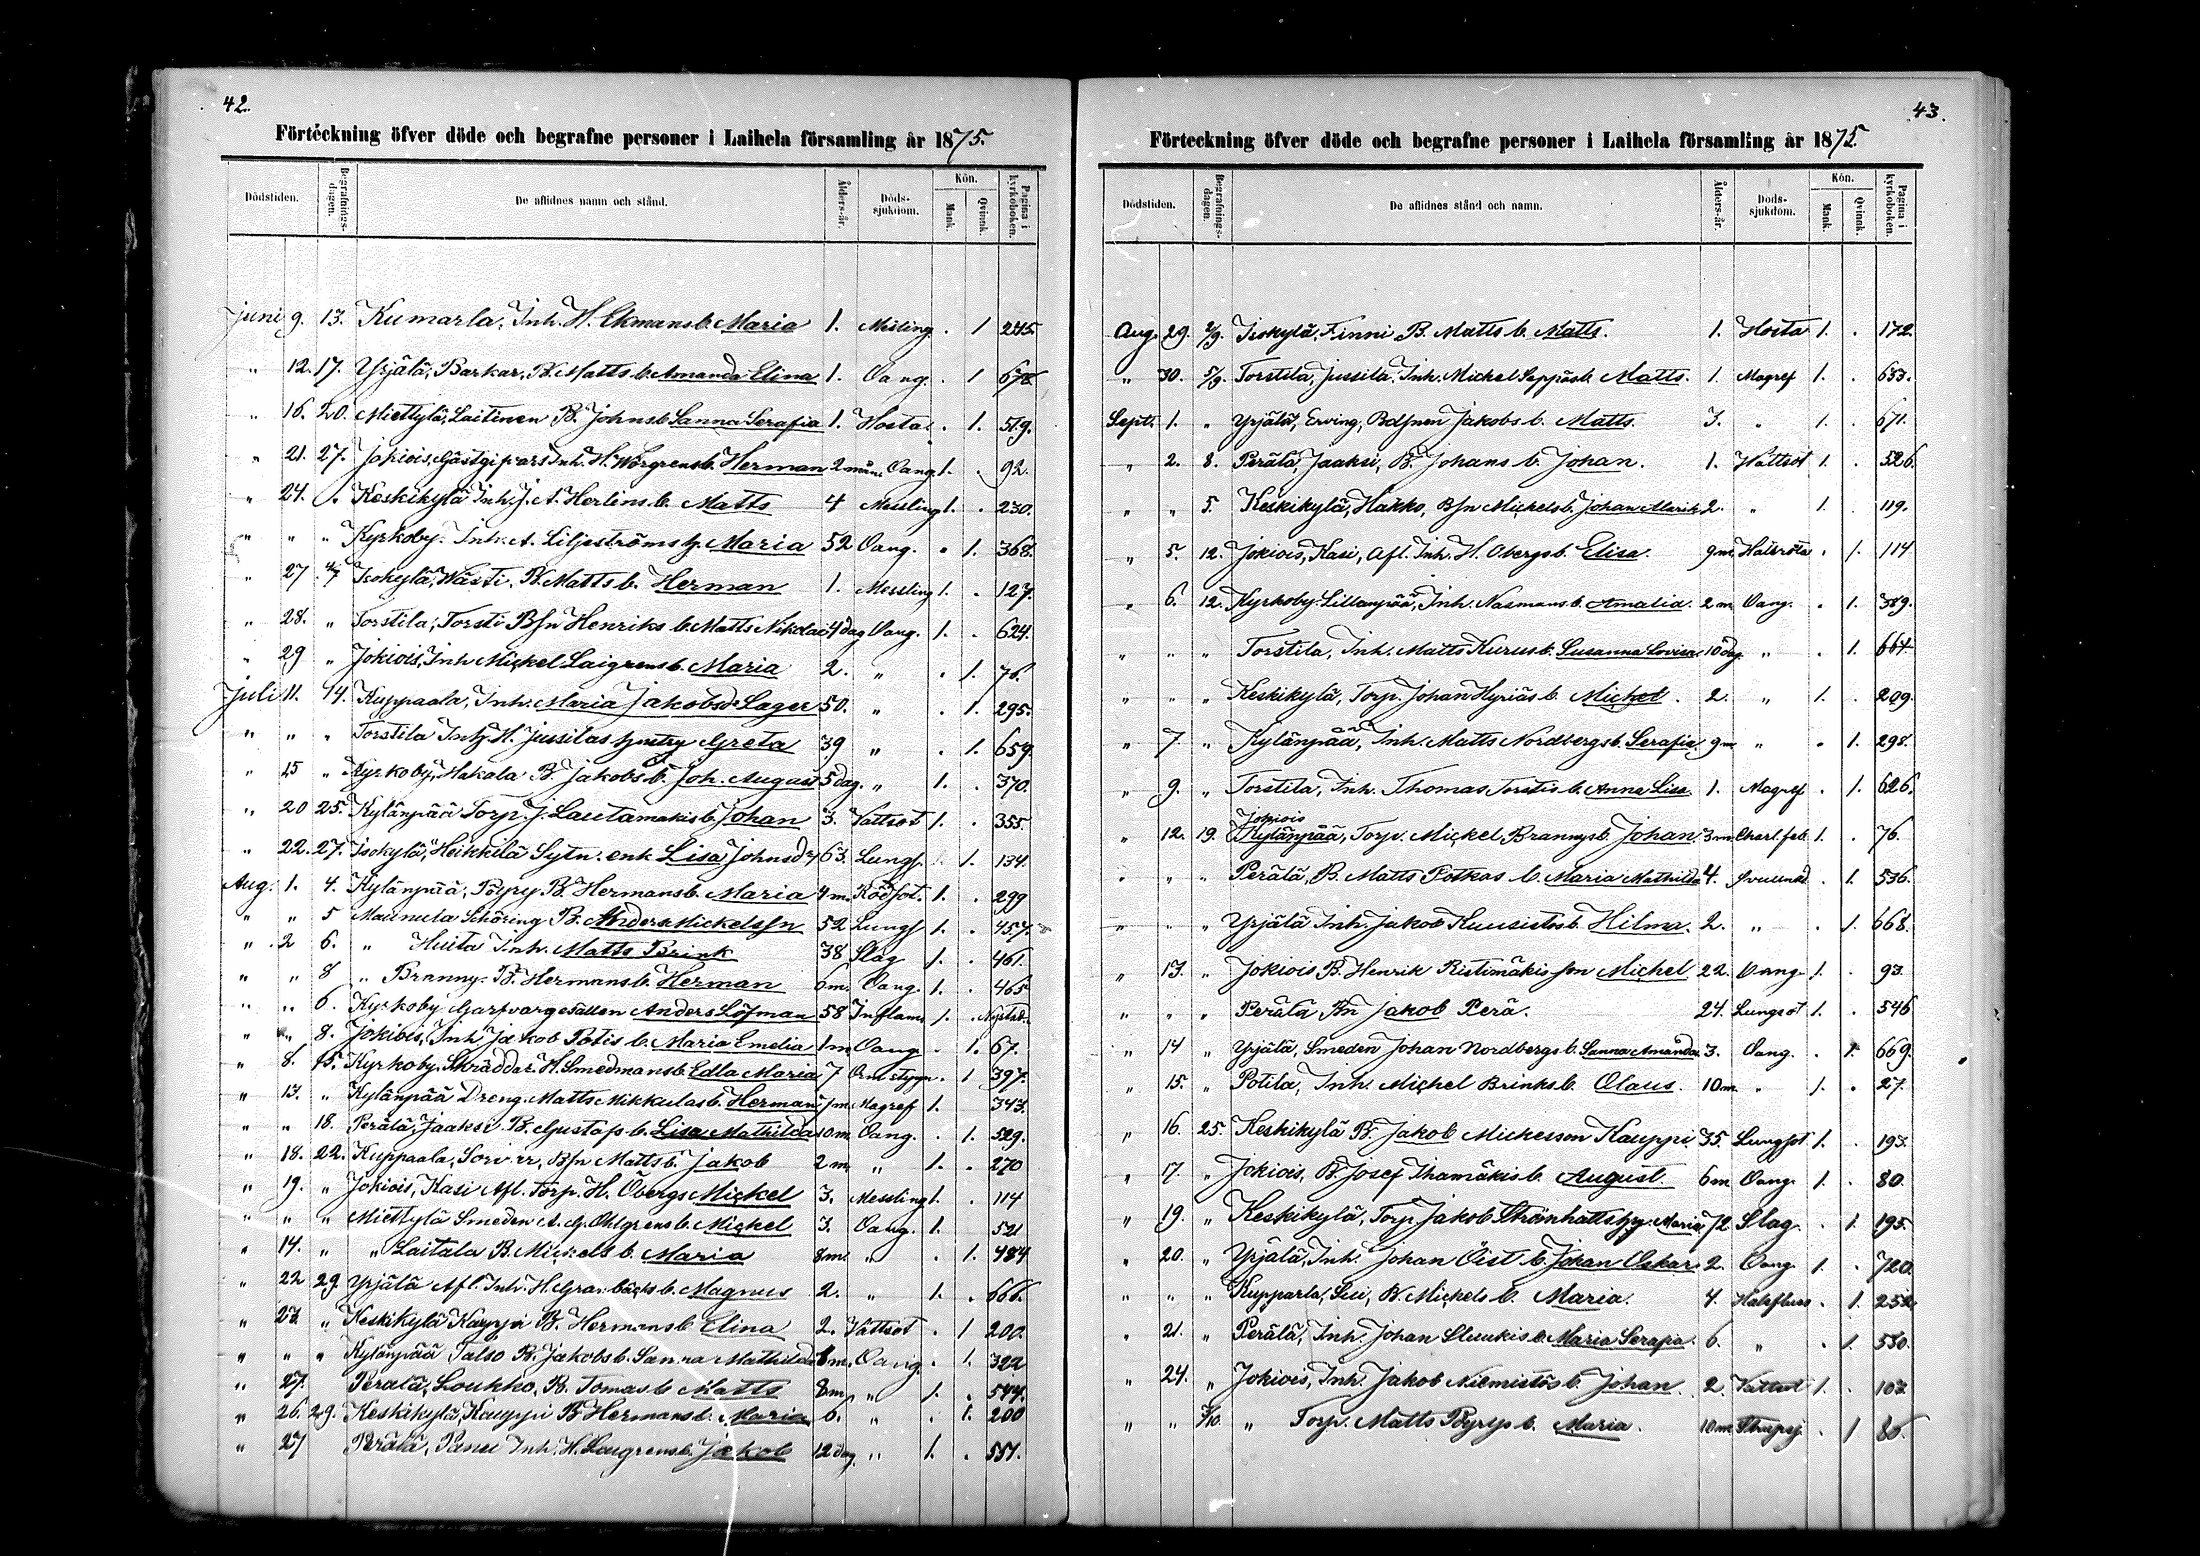 42.
Förteckning öfver döde och begrafne personer i Laihela församling år 1875.
Dödstiden. Begrafnings-dagen. De aflidnes namn och stånd. Ålders-år. Döds-sjukdom. Kön. Mank. Qvinnk. Pagina i kyrkoboken.
Juni 9. 13. Kumarla, Inh. H. Ekmans b. Maria 1. Messling . 1 245
„ 12. 17. Yrjälä, Barkar, B. Matts b. Amanda Elina 1. Oang. . 1 678.
„ 16. 20. Miettylä, Laitinen B. Johns b. Sanna Serafia 1. Hosta . 1. 519.
„ 21. 27. Jokiois, Gästgifvars Inh. H. Worgrens b. Herman 2 mån. Oang. 1. . 92.
„ 24. „ Keskikylä Inh. J. A. Herlins b. Matts 4 Messling 1. . 230.
„ „ „ Kyrkoby. Inh. A. Liljeströms h. Maria 52 Oang. . 1. 368.
„ 27 4/7 Isokylä, Wästi. B. Matts b. Herman 1. Messling 1. . 127.
„ 28. „ Torstila, Torsti B/n Henriks b. Matts Nikolai 4 dag Oang. 1. . 624.
„ 29 „ Jokiois, Inh Mickel Laigrens b. Maria 2. „ . 1. 76.
Juli 11. 14. Kuppaala, Inh. Maria Jakobsdr Lager 50. „ . 1. 295.
„ „ „ Torstila Inh. H. Jussilas hustry Greta 39 „ . 1. 659.
„ 15 „ Kyrkoby, Hakala B. Jakobs b. Joh. August 5 dag. „ 1. . 370.
„ 20 25. Kylänpää Torp. J. Lautamakis b. Johan 3. Vattsot 1. . 355.
„ 22. 27. Isokylä, Heikkilä Sytn. enk Lisa Johnsdr 63. Lungs. . 1. 134.
Aug. 1. 4. Kylänpää, Pöyry B. Hermans b. Maria 4 m. Rödsot. 1. . 299
„ „ 5 Maunula Schöring B. Anders Mickels/n 52 Lungs 1. . 457.
„ 2 6. „ Huita Inh. Matts Brink 38 Slag 1. . 461.
„ „ 8 „ Branny. B. Hermans b. Herman 6 m. Oang. 1. . 465
„ „ 6. Kyrkoby Garfvargesällen Anders Löfman 58 Inflam 1. . Nystad.
„ „ 8. Jokiois, Inh Jakob Potis b. Maria Emelia 1 m Oang. . 1. 67.
„ 8. 15. Kyrkoby. Skräddar. H. Smedmans b. Edla Maria 7 Orm stygn . 1 397.
„ 13. „ Kylänpää Dreng. Matts Mikkulas b. Herman 7 m. Magref 1. 343.
„ „ 18. Perälä, Jaaksi B. Gustafs b. Lisa Mathilda 10 m. Oang. . 1. 529.
„ 18. 22. Kuppaala, B/n Matts b. Jakob 2 m. „ 1. . 270
„ 19. „ Jokiois, Kasi Afl. Torp. H. Öbergs Mickel 3. Messling 1. . 114
„ „ „ Miettylä Smeden A. G. Ohlgrens b. Mickel 3. Oang. 1. 521
„ 14. „ „ Laitala B. Mickels b. Maria 8 m. „ . 1. 484
„ 22 29 Yrjälä Afl. Inh. H. Granbäcks b. Magnus 2. „ 1. . 666.
„ 23. „ Keskikylä Kauppi B. Hermans b. Elina 2. Vattsot . 1 200.
„ „ „ Kylänpää Talso B. Jakobs b. Sanna Mathilda 8 m. Oang. . 1. 322
„ 27. Perälä, Loukko, B. Tomas b Matts 8 m „ 1. . 544.
„ 26. 29. Keskikylä, Kauppi B Hermans b. Maria 6. „ . 1. 200
„ 27 Perälä, Panu Inh. H. Laugrens b. Jakob 12 dag „ 1. . 551.
43.
Förteckning öfver döde och begrafne personer i Laihela församling år 1875.
Dödstiden. Begrafnings-dagen. De aflidnes stånd och namn. Ålders-år. Döds-sjukdom. Kön. Mank. Qvinnk. Pagina i kyrkoboken.
Aug. 29. 2/9. Isokylä, Finni B. Matts b. Matts. 1. Hosta 1. . 172.
„ 30. 5/9. Torstila, Jussila, Inh. Mickel Seppäs b. Matts. 1. Magref 1. . 633.
Sept. 1. „ Yrjälä, Erving, Jakobs b. Matts. 3. „ 1. . 671.
„ 2. 8. Perälä, Jaaksi, B. Johans b. Johan. 1. Vattsot 1. . 526.
„ „ 5. Keskikylä, Hakko, B/n Mickels b. Johan Alarik 2. „ 1. 119.
„ 5. 12. Jokiois, Kasi, Afl. Inh. H. Obergs b. Elisa. 9 m. Halsröta . 1. 114
„ 6. 12. Kyrkoby Lillanpää, Inh. Nasmans b. Amalia. 2 m Oang. . 1. 389.
„ „ „ Torstila, Inh. Matts Kurus b. Susanna Lovisa. 10 dag. „ . 1. 664.
„ „ „ Keskikylä, Torp. Johan Hyriäs b. Michel. 2. „ 1. . 209.
„ 7. „ Kylänpää, Inh. Matts Nordbergs b. Serafia. 9 m „ . 1. 298.
„ 9. „ Torstila, Inh. Thomas Torstis b. Anna Lisa. 1. Magref . 1. 626.
Jokiois
„ 12. 19. Kylänpää, Torp. Mickel Brannys b. Johan. 3 m Charl. feb. 1. . 76.
„ „ „ Perälä, B. Matts Potkas b. Maria Mathilda 4. . 1. 536.
„ „ „ Yrjälä Inh. Jakob Kuusistos b. Hilma. 2. „ . 1. 668.
„ 13. „ Jokiois B. Henrik Ristimäkis son Michel 22. Oang. 1. . 93.
„ „ „ Perälä Bn Jakob Perä. 24. Lungsot 1. . 546
„ 14 „ Yrjälä, Smeden Johan Nordbergs b. Sanna Amanda. 3. Oang. . 1. 669.
„ 15. „ Potila, Inh. Michel Brinks b. Olaus. 10 m. „ 1. . 27.
„ 16. 25. Keskikylä B. Jakob Mickesson Kauppi 35. Lungsot 1. . 193.
„ 17. „ Jokiois, B. Josef Ihamäkis b. August. 6 m Oang. 1. . 80.
„ 19. „ Keskikylä, Torp. Jakob Strömhatts hy. Maria 72 Slag. . 1. 195.
„ 20. „ Yrjälä, Inh. Johan Öist b. Johan Oskar. 2. Oang. 1. . 720.
„ „ „ Kupparla, B. Mickels b. Maria. 4. Halsfluss . 1. 252.
„ 21. „ Perälä, Inh. Johan Sluukis b. Maria Serafia. 6. „ . 1. 530.
„ 24. „ Jokiois, Inh. Jakob Niemistös b. Johan 2 Vattsot 1. . 107.
„ „ 3/10. „ Torp. Matts Pyrys b. Maria. 10 m . 1 86.